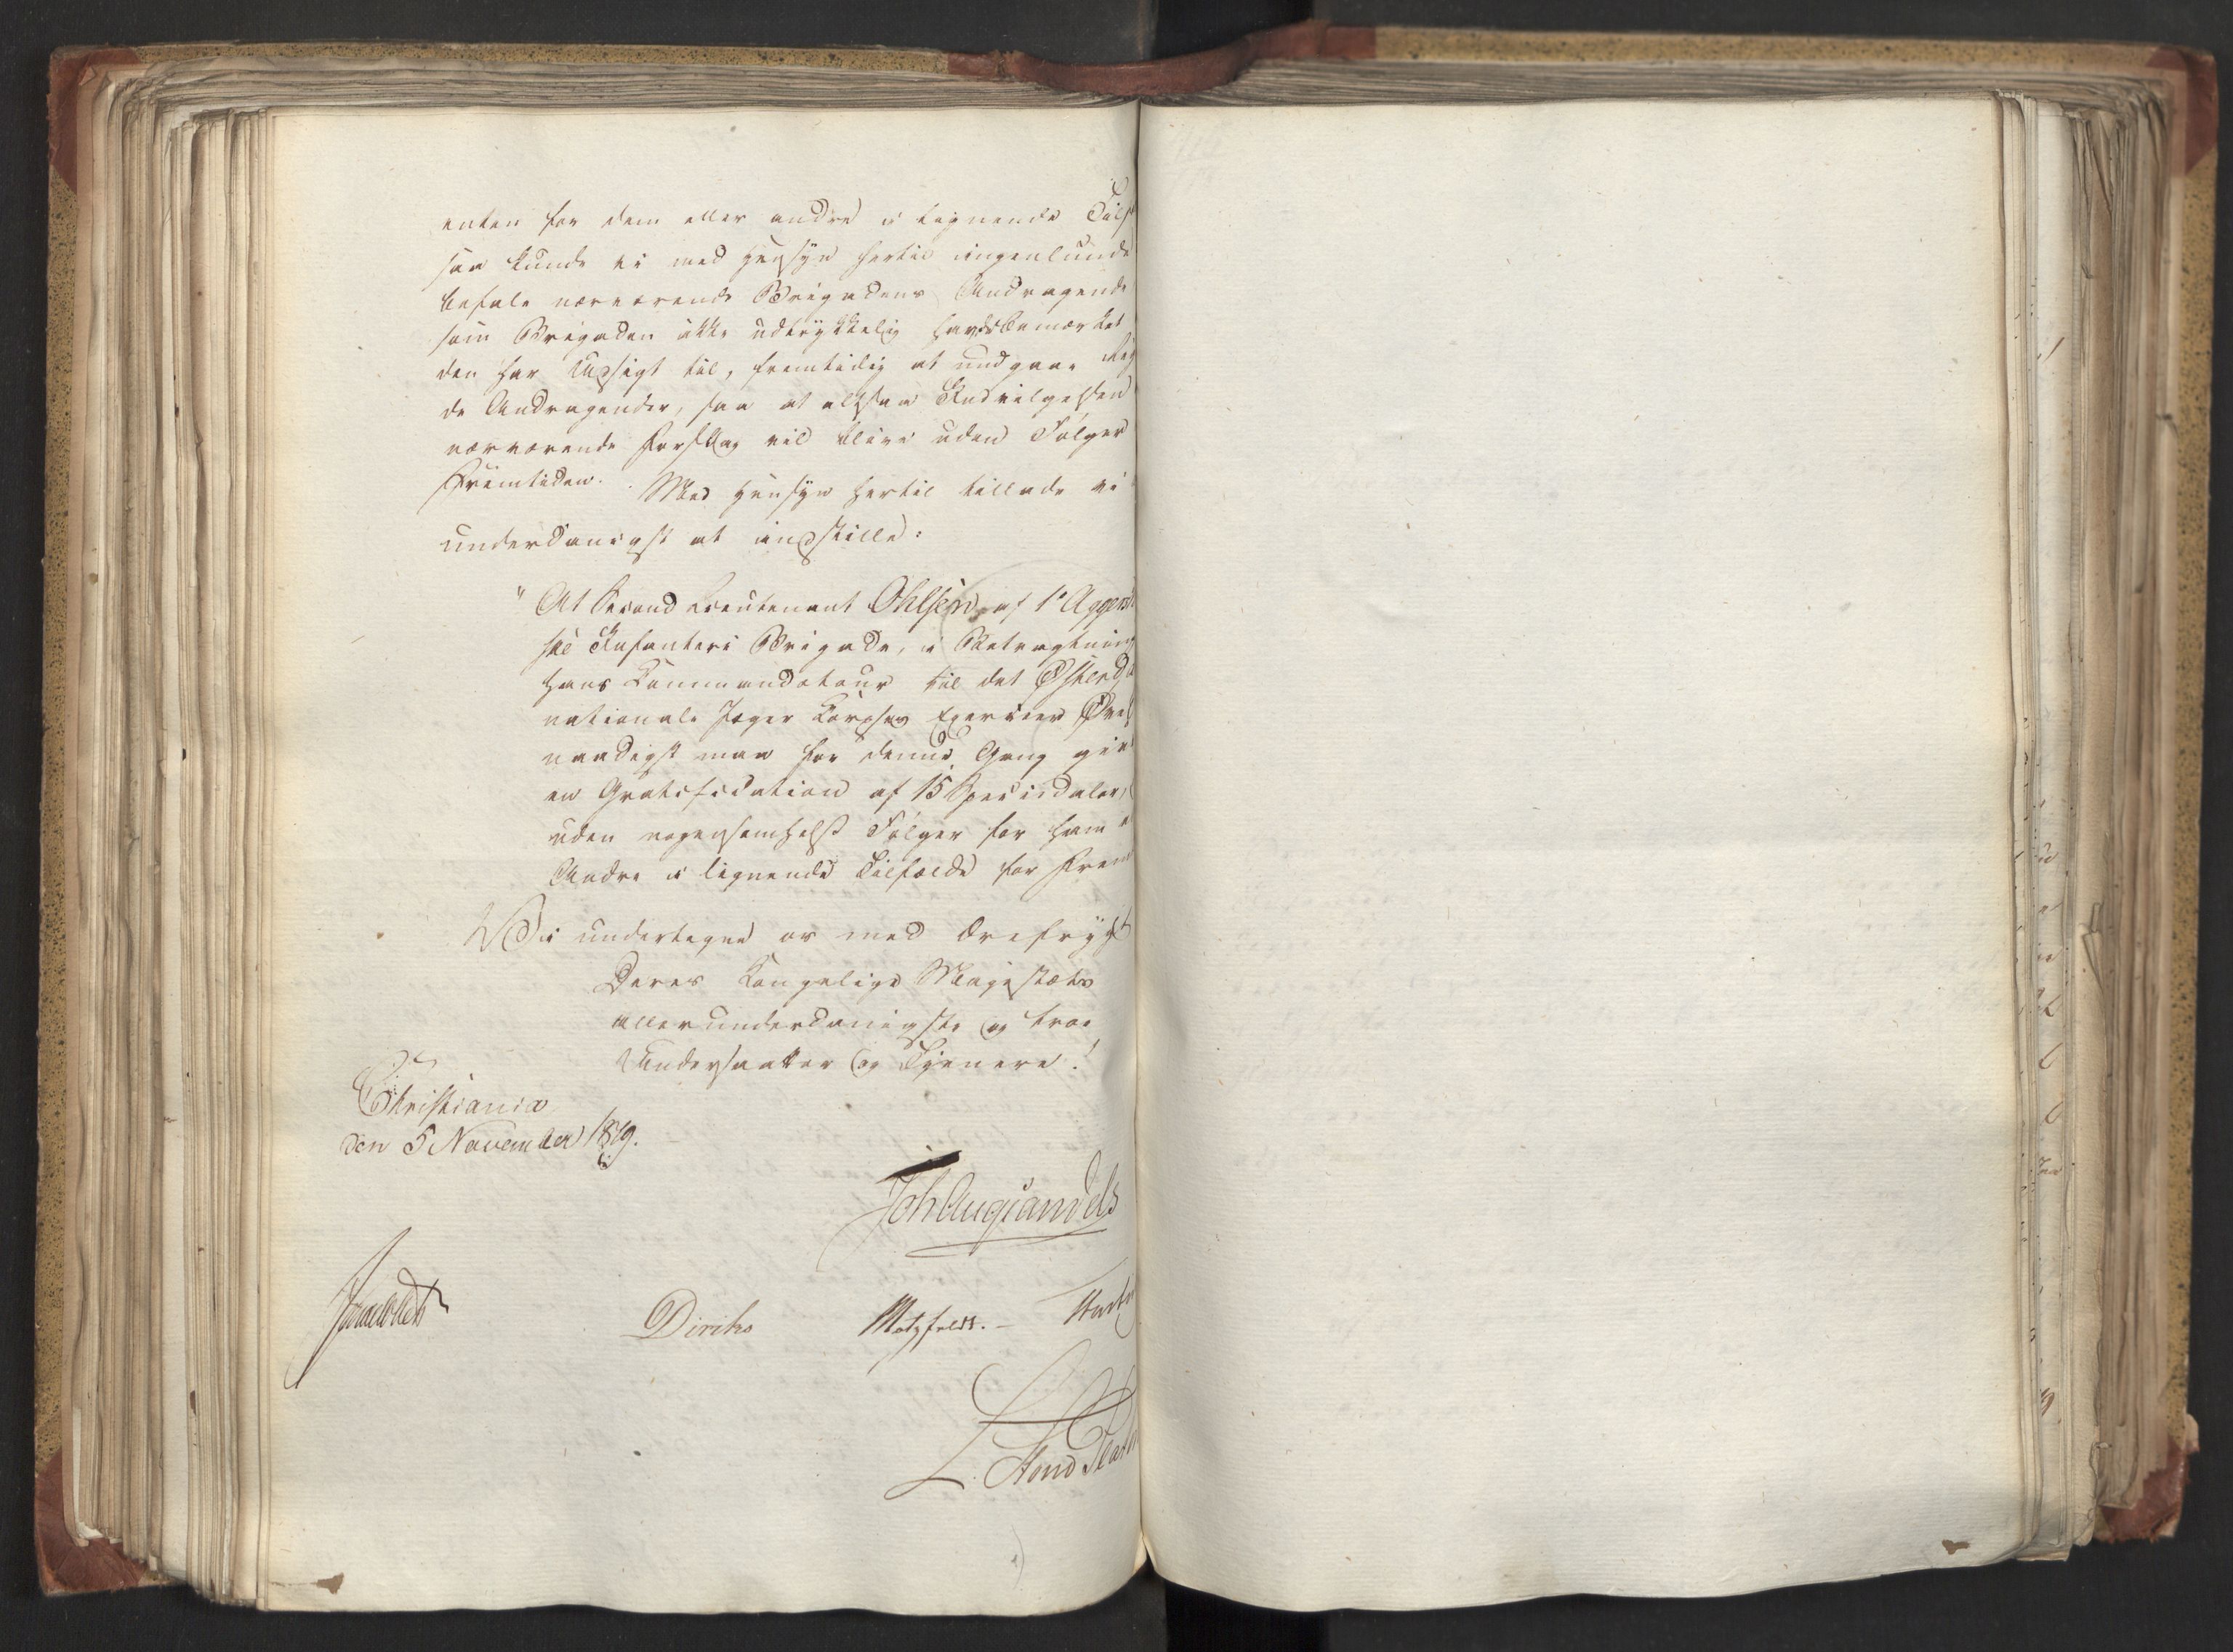 enten for dem eller andre i lignende Tilf
saa kunde vi med Hensyn hertil ingenlunde
befale nærværende Brigadens Andragende
som Brigaden ikke udtrykkelig havde bemærket
den har Hensigt til, fremtidig at undgaae
de Andragender, saa at altsaa Indvilgelsen
nærværende Forslag vil blive uden Følger
Fremtiden. Med Hensyn hertil tillade vi
underdanigst at indstille:
"At Second Lieutenant Ohlsen af 1e Aggers
ske Infanteri Brigade, i Betragtning
hans Commandotour til det Østerd
nationale Jæger Corpses Exerceer Øvel
naadigst maa for denne Gang giv
en Gratification af 15 Speciedaler,
uden nogensomhelst Følger for ham
Andre i lignende Tilfælde for Frem
Vi undertegne os med Ærefrygt
Deres Kongelige Majestæts
allerunderdanigste og troe
Undersaatter og Tjenere!
Christiania
den 5 November 1819.
Joh Aug Sandels
Diriks Motzfeldt.